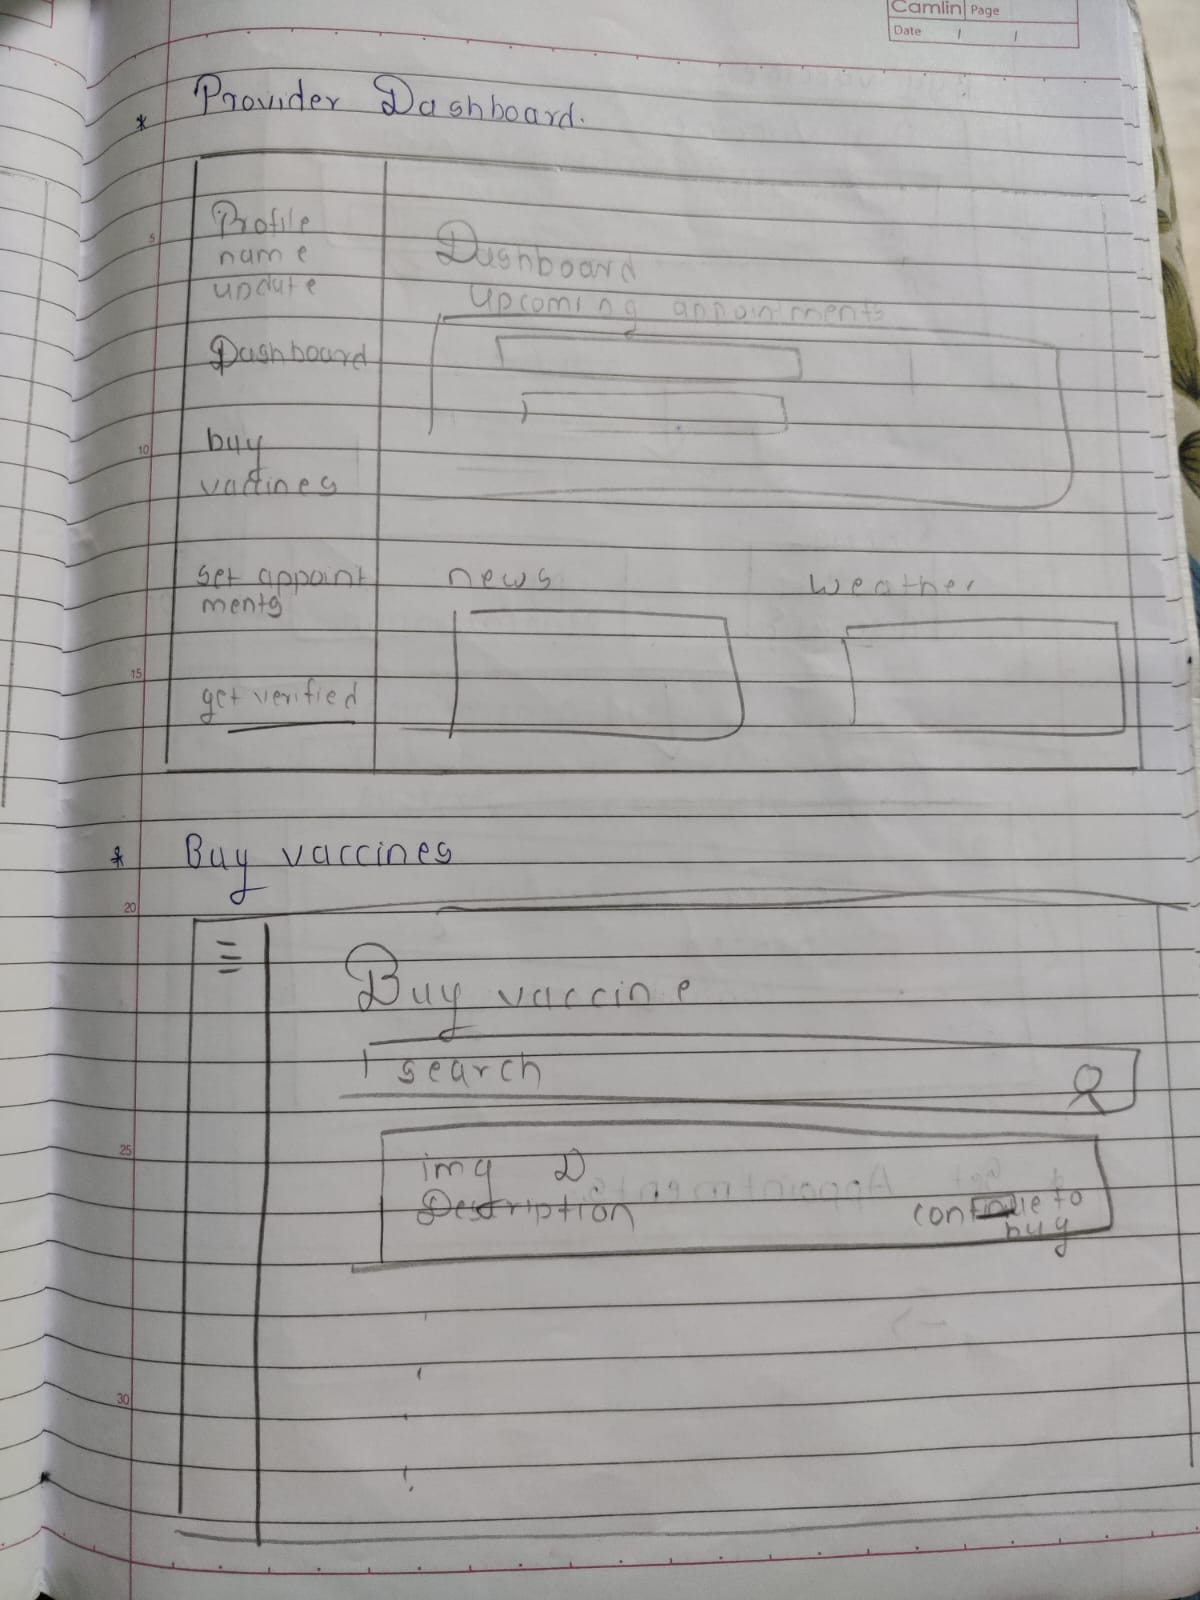 Camlin Page
Date / /
* Provider Dashboard.
Profile
name
update
Dashboard
buy
vaccines
set appoint
ments
get verified
Dashboard
Upcoming appointments
news
weather
* Buy vaccines
Buy vaccine
search
img D
Description
continue to
buy
5
10
15
20
25
30